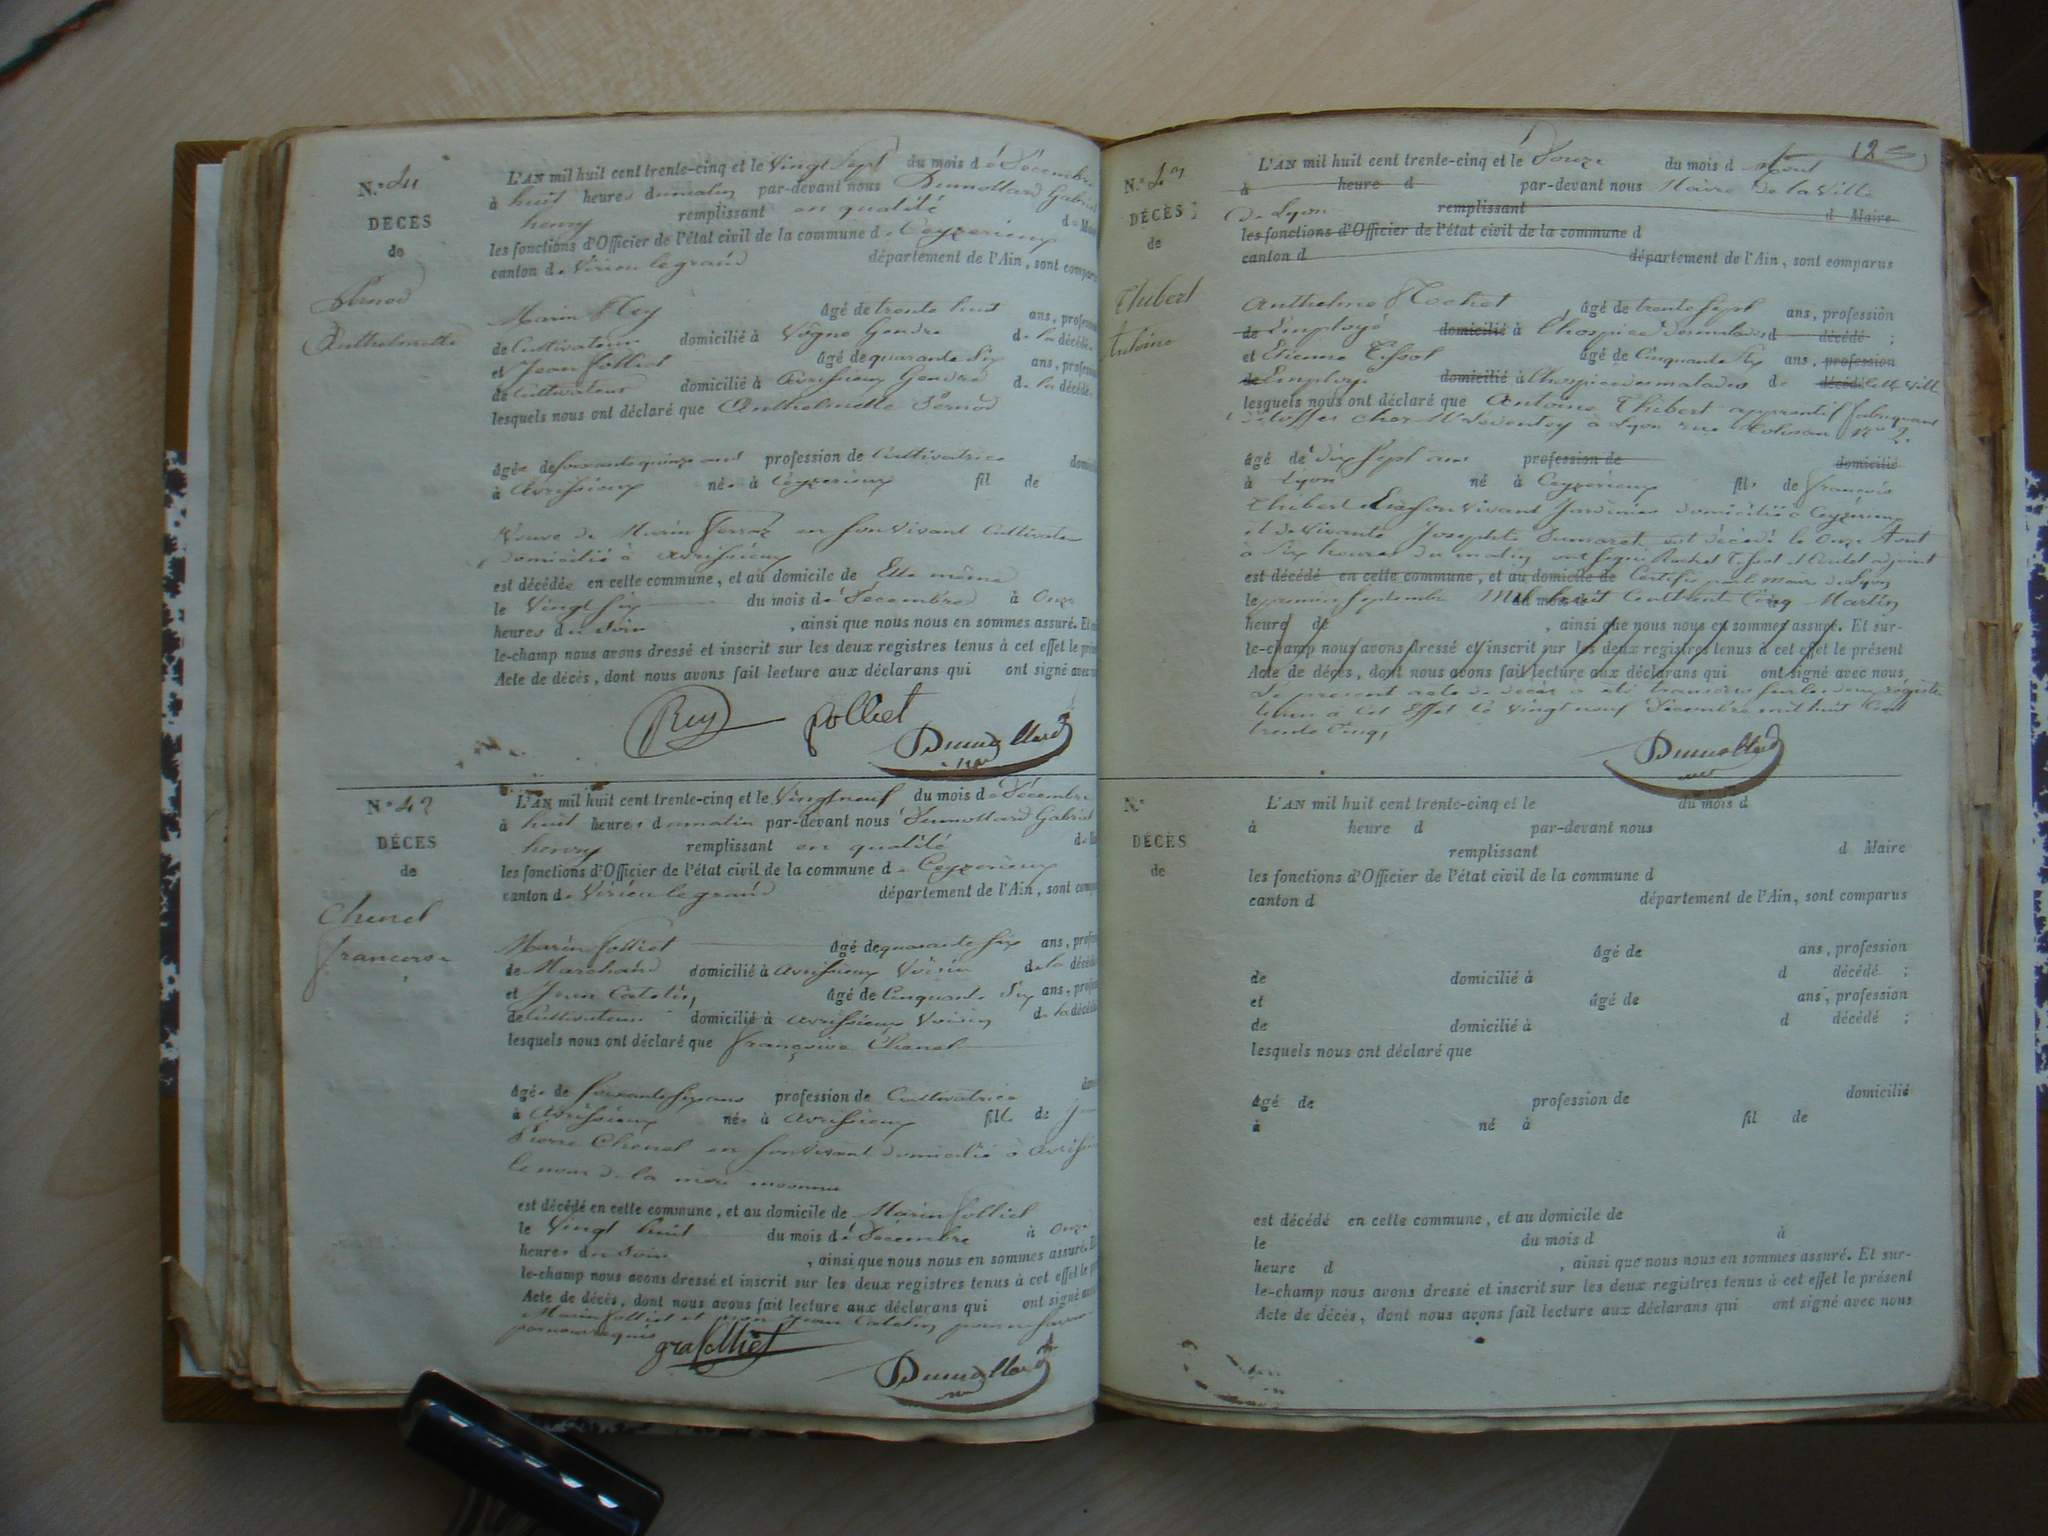 N.º
DÉCÈS
de
Pernod
Anthelmette
L'AN mil huit cent trente-cinq et le vingt sept du mois de Décembre
à huit heures du matin par-devant nous Dumollard Gabriel
henry remplissant en qualité d
les fonctions d'Officier de l'état civil de la commune de Ceyzerieux
canton de Virieu le grand département de l'Ain, sont comparus
Marin Rey âgé de trente huit ans, profession
de Cultivateur domicilié à Vogno Gendre de la décédée
et Jean folliet âgé de quarante six ans, profession
de Cultivateur domicilié à Avrissieux Gendre de la décédée
lesquels nous ont déclaré que Anthelmette Pernod
âgée de soixante quinze ans profession de Cultivatrice
à Avrissieux née à Ceyzerieux fil de
Veuve de Marin Ferraz en son vivant Cultivateur
domicilié à avrissieux
est décédée en cette commune, et au domicile de Elle même
le Vingt six du mois de Décembre à Onze
heures du Soir , ainsi que nous nous en sommes assuré. Et
le-champ nous avons dressé et inscrit sur les deux registres tenus à cet effet le
Acte de décès, dont nous avons fait lecture aux déclarans qui ont signé avec
Rey folliet
Dumollard
N.º 42
DÉCES
de
Chenel
francoise
L'AN mil huit cent trente-cinq et le Vingt neuf du mois de Décembre
à huit heures du matin par-devant nous Dumollard Gabriel
henry remplissant en qualité de
les fonctions d'Officier de l'état civil de la commune de Ceyzerieux
canton de Virieu le grand département de l'Ain, sont
Marin folliet âgé de quarante six ans,
de Marchand domicilié à Avrissieux Voisin de la décédée
et Jean Catelin âgé de Cinquante Six ans,
de Cultivateur domicilié à Avrissieux Voisin de la décédée
lesquels nous ont déclaré que françoise Chenel
âgée de soixante six ans profession de Cultivatrice
à Avrissieux née à Avrissieux fille de
Pierre Chenel en son vivant domicilié à
le nom de la mère inconnu
est décédé en cette commune, et au domicile de Marin folliet
le Vingt huit du mois de Décembre à Onze
heures du Soir , ainsi que nous nous en sommes assuré.
le-champ nous avons dressé et inscrit sur les deux registres tenus à cet effet le
Acte de décès, dont nous avons fait lecture aux déclarans qui ont signé
Marin folliet et non Jean Catelin pour ne savoir
requis
folliet
Dumollard
123
N.º
DÉCÈS
de
Thibert
Antoine
L'AN mil huit cent trente-cinq et le Douze du mois d Aout
à heure d par-devant nous Maire de la Ville
de Lyon remplissant d Maire
les fonctions d'Officier de l'état civil de la commune d
canton d département de l'Ain, sont comparus
Anthelme Rochet âgé de trente sept ans, profession
de Employé domicilié à l'hospice des malades d décédé ;
et Etienne Tissot âgé de Cinquante six ans, profession
de Employé domicilié à l'hospice des malades de décédé cette Ville
lesquels nous ont déclaré que Antoine Thibert apprentif fabriquant
d'étoffes chez Mr à Lyon rue Nro 2.
âgé de dix sept ans profession de domicilié
à Lyon né à Ceyzerieux fils de françois
Thibert En son vivant Jardinier domicilié à Ceyzerieux
et de vivante Josephte Dumaret est décédé le Onze Aout
à Six heures du matin ont signé Rochet Tissot et adjoint
est décédé en cette commune, et au domicile de Certifié par le maire de Lyon
le premier Septembre du mois d Mil huit Cent trente Cinq Martin
heure de , ainsi que nous nous en sommes assuré. Et sur-
le-champ nous avons dressé et inscrit sur les deux registres tenus à cet effet le présent
Acte de décès, dont nous avons fait lecture aux déclarans qui ont signé avec nous
Le présent acte de décès a été transcris sur les deux régistres
tenus à Cet Effet le Vingt neuf Décembre mil huit Cent
trente Cinq,
Dumollard
N.º
DÉCÈS
de
L'AN mil huit cent trente-cinq et le du mois d
à heure d par-devant nous
remplissant d Maire
les fonctions d'Officier de l'état civil de la commune d
canton d département de l'Ain, sont comparus
âgé de ans, profession
de domicilié à d décédé ;
et âgé de ans, profession
de domicilié à d décédé ;
lesquels nous ont déclaré que
âgé de profession de domicilié
à né à fil de
est décédé en cette commune, et au domicile de
le du mois d à
heure d , ainsi que nous nous en sommes assuré. Et sur-
le-champ nous avons dressé et inscrit sur les deux registres tenus à cet effet le présent
Acte de décès, dont nous avons fait lecture aux déclarans qui ont signé avec nous